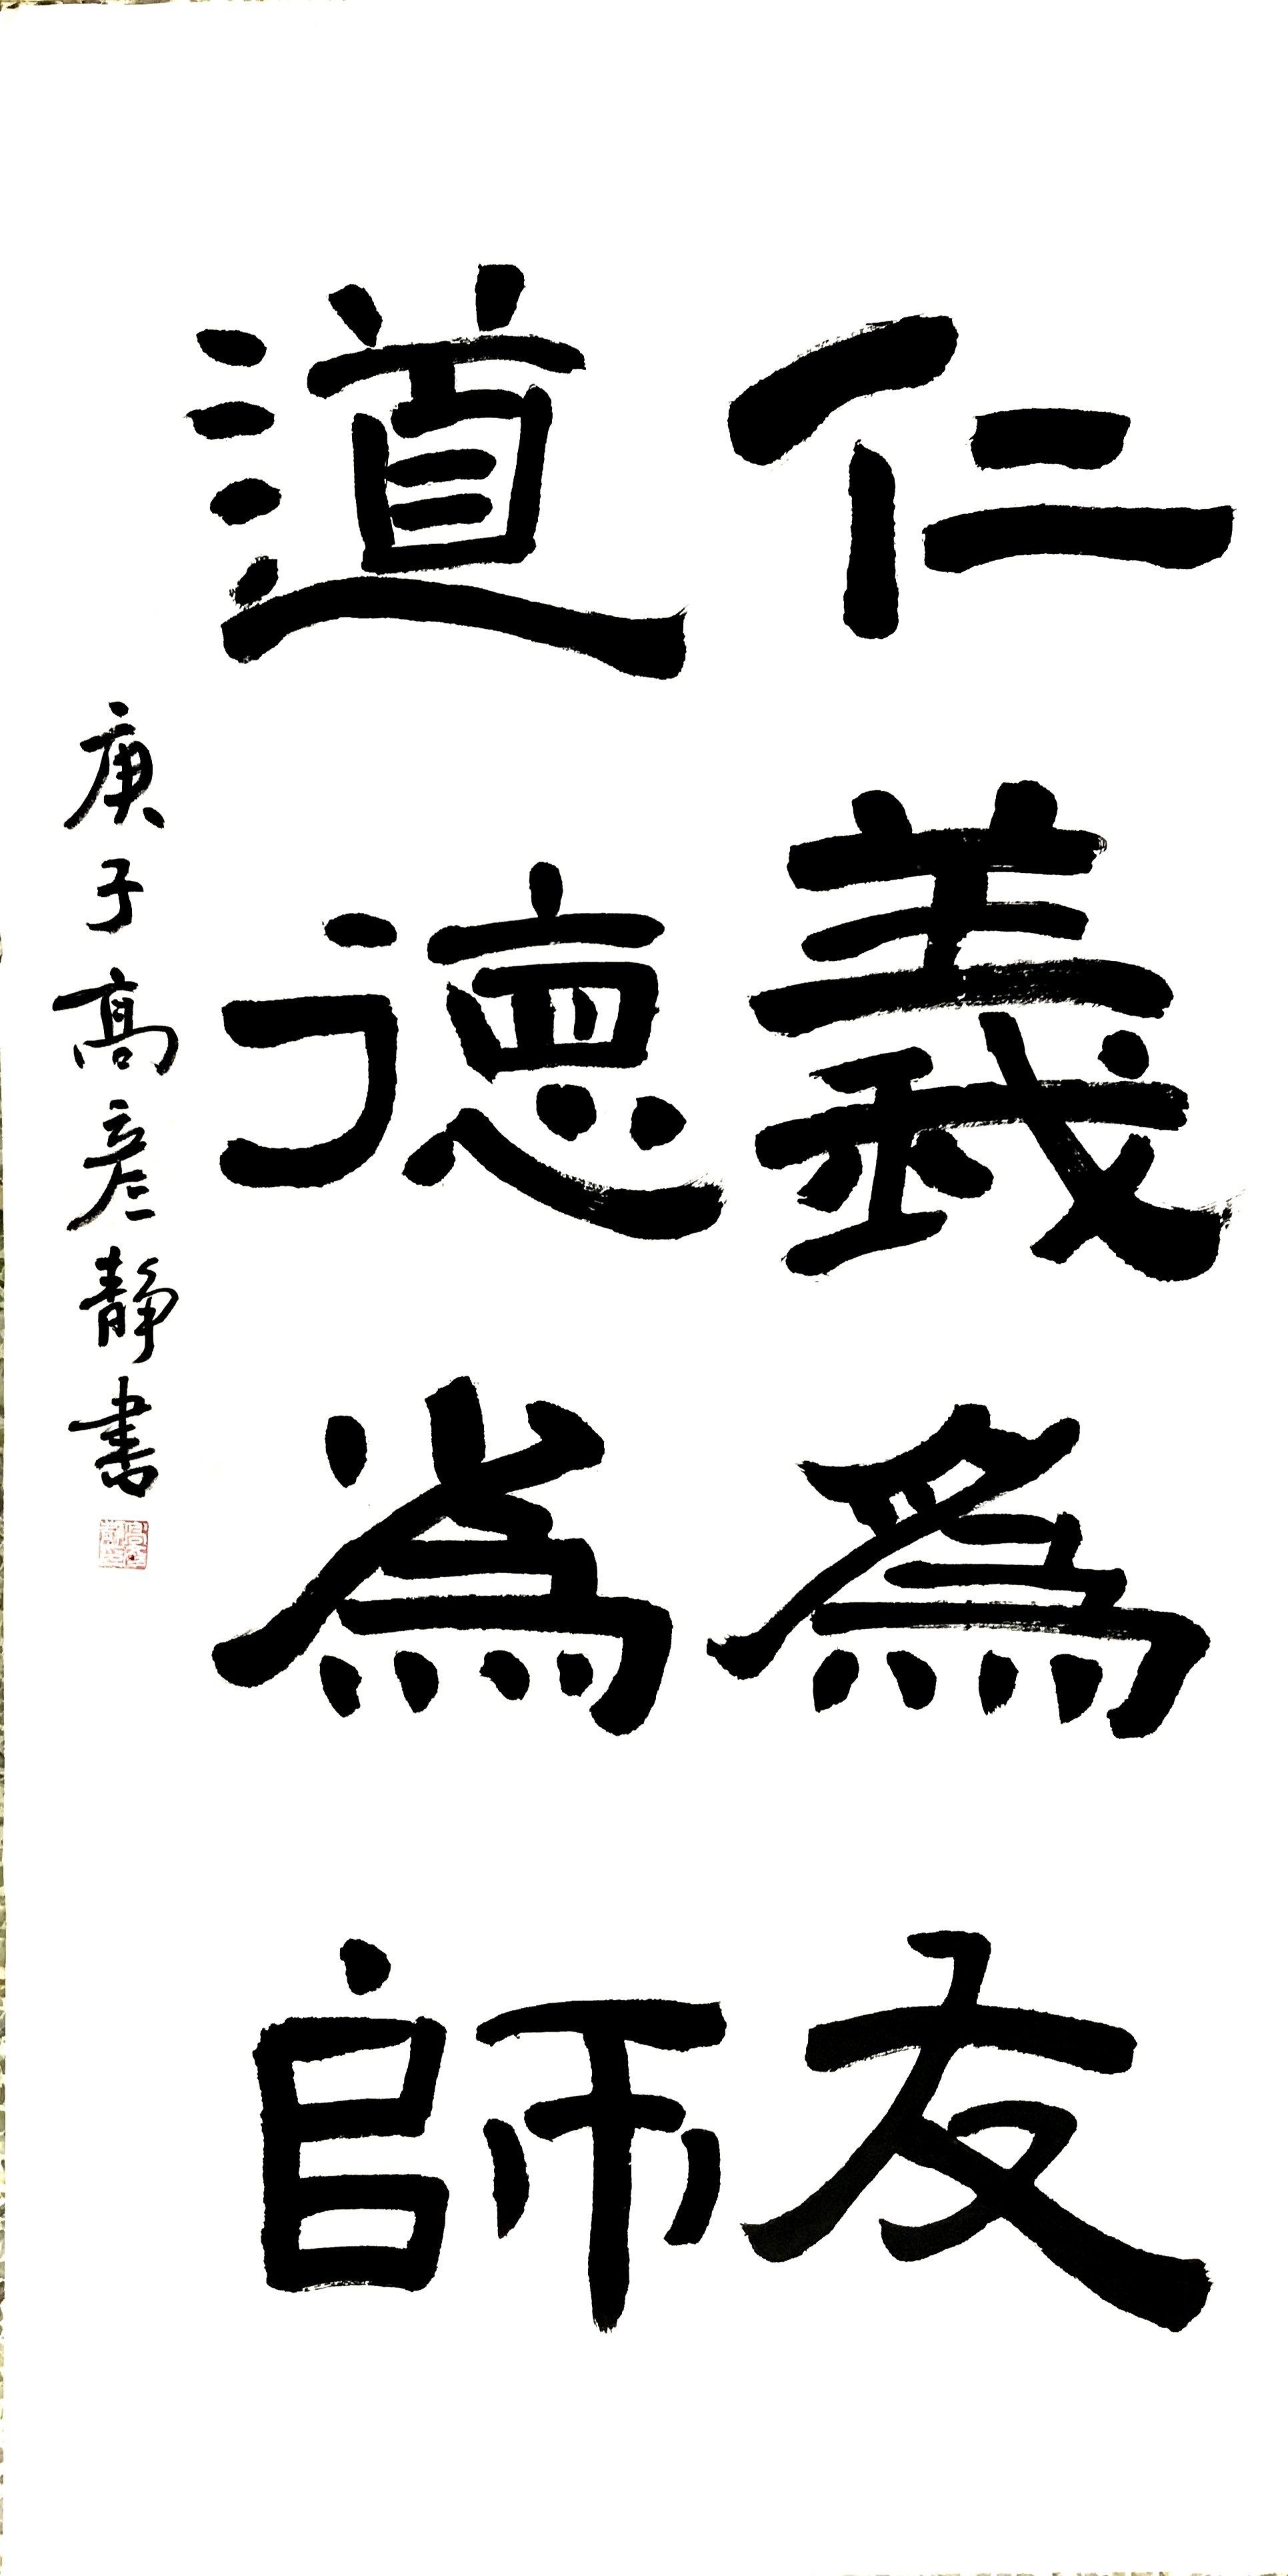 仁義為友
道德為師
庚子高彦静書